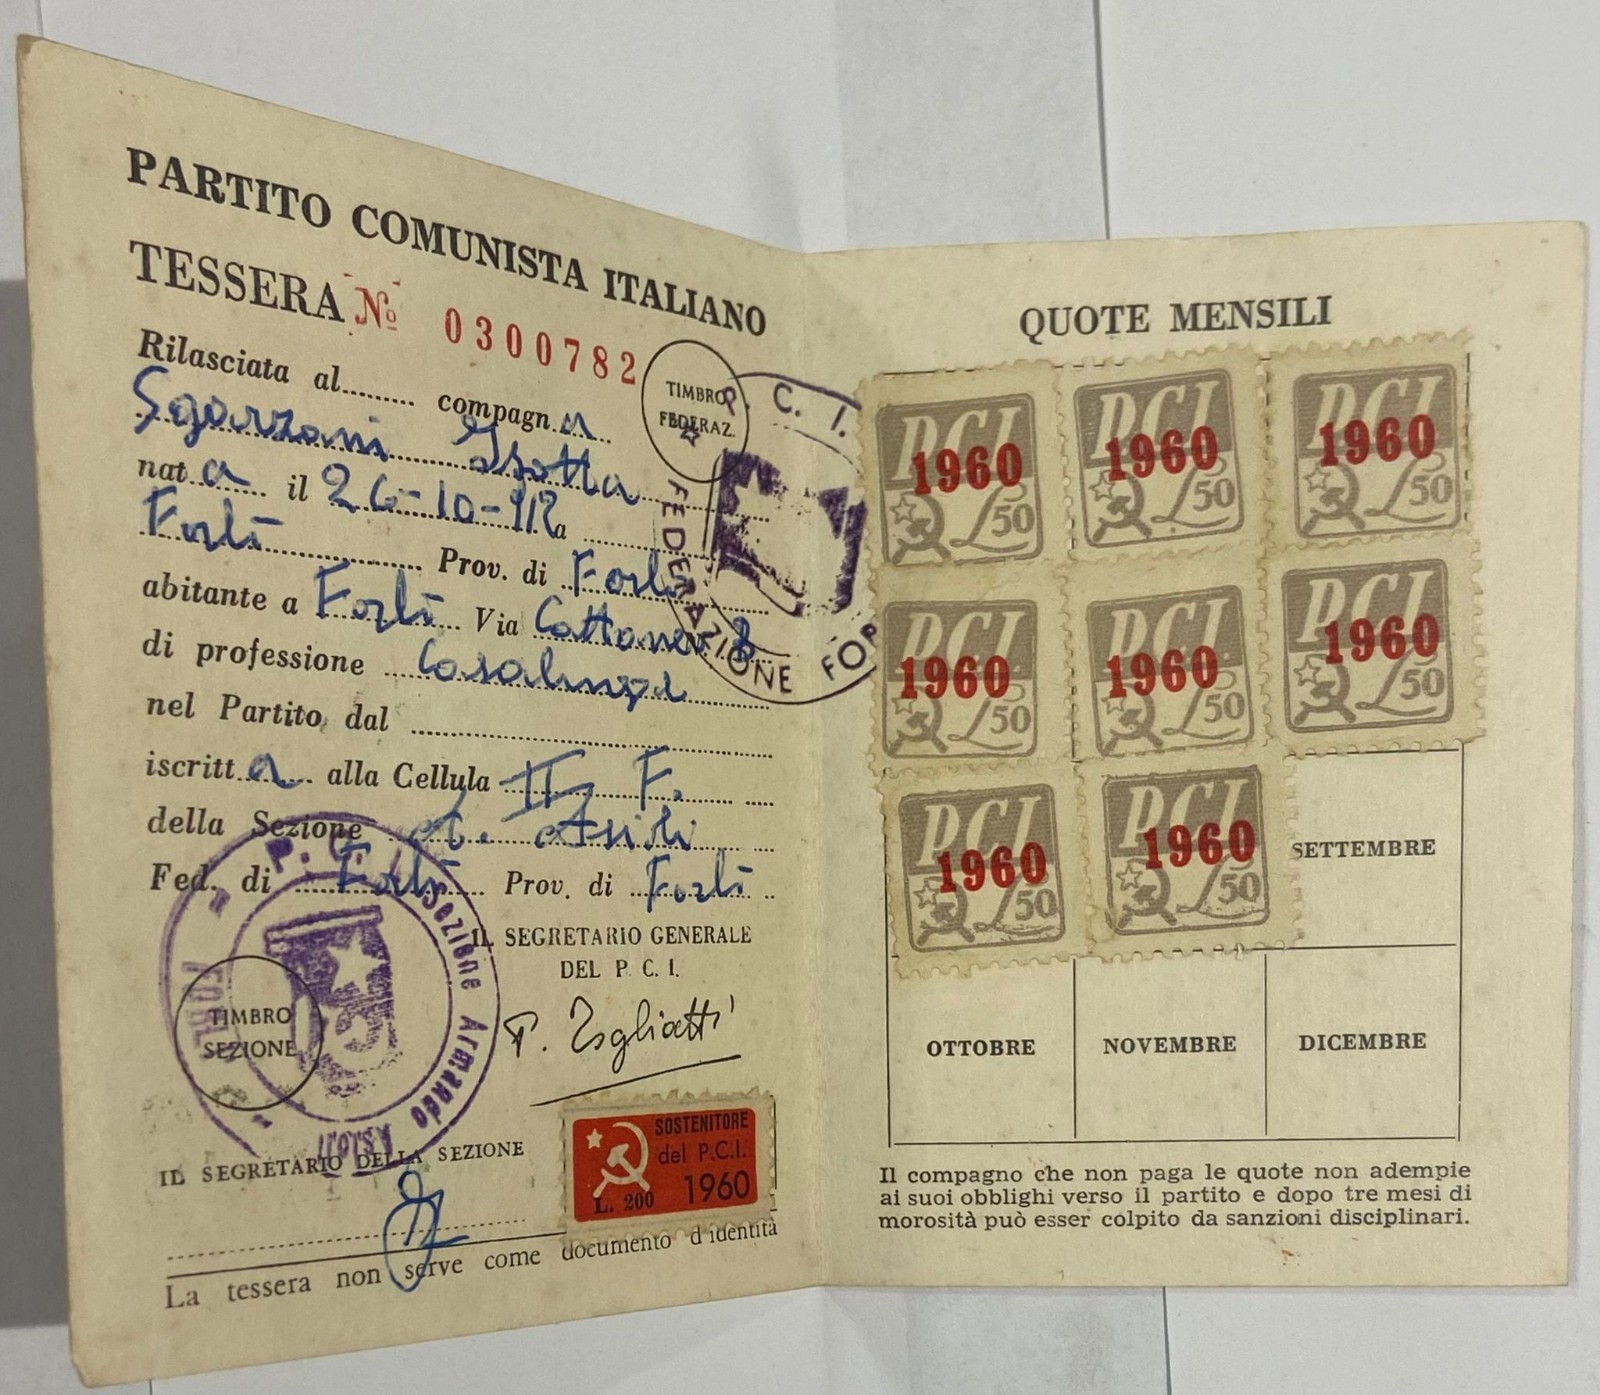 PARTITO COMUNISTA ITALIANO
TESSERA No 0300782
Rilasciata al........ compagna
Sgarzani Isotta
nata il 26-10-912 a
Forlì Prov. di Forlì
abitante a Forlì Via
di professione Casalinga
nel Partito dal
iscritta alla Cellula II F.
della Sezione A. Asioli
Fed. di Forlì Prov. di Forlì
IL SEGRETARIO GENERALE
DEL P. C. I.
P. Togliatti
TIMBRO
FEDERAZ.
P. C. I.
FEDERAZIONE
TIMBRO
SEZIONE
P. C. I. Sezione Armando Asioli
FORLÌ
IL SEGRETARIO DELLA SEZIONE
SOSTENITORE
del P.C.I.
L. 200 1960
La tessera non serve come documento d'identità
QUOTE MENSILI
PCI 1960 £50
PCI 1960 £50
PCI 1960 £50
PCI 1960 £50
PCI 1960 £50
PCI 1960 £50
PCI 1960 £50
PCI 1960 £50
SETTEMBRE
OTTOBRE NOVEMBRE DICEMBRE
Il compagno che non paga le quote non adempie
ai suoi obblighi verso il partito e dopo tre mesi di
morosità può esser colpito da sanzioni disciplinari.